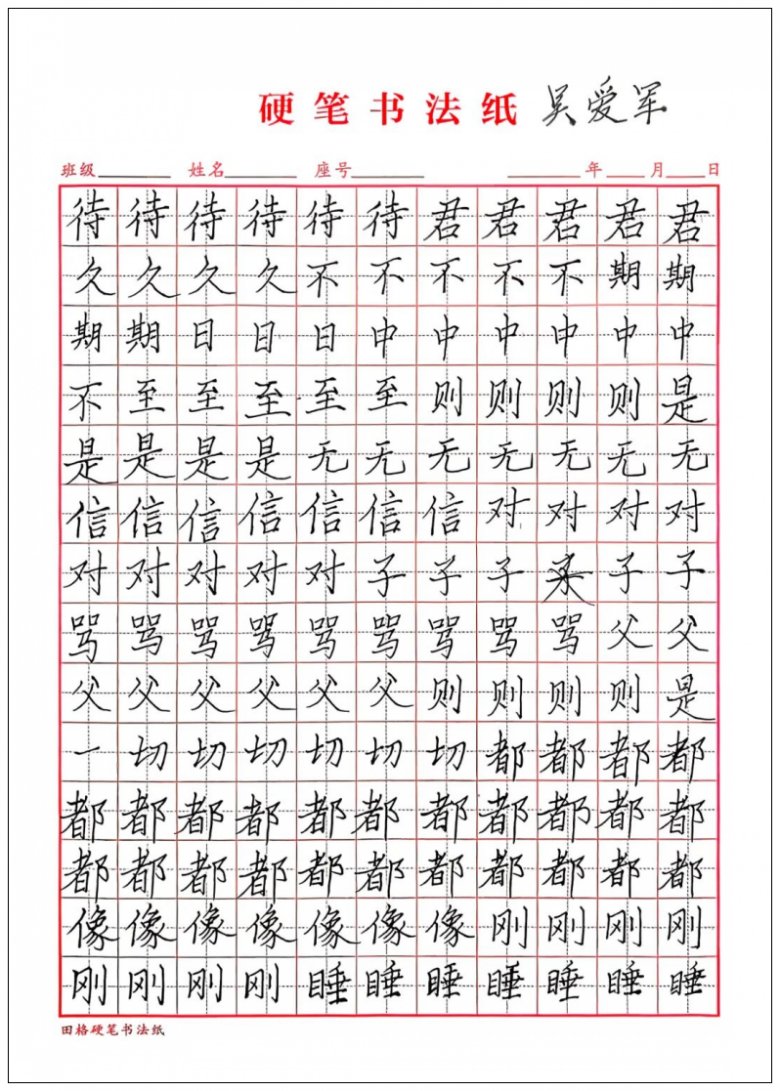 硬笔书法纸 吴爱军
班级 姓名 座号 年 月 日
待待待待待待君君君君君
久久久久不不不不不期期
期期日日日中中中中中中
不至至至至至则则则则是
是是是是无无无无无无无
信信信信信信信对对对对
对对对对对子子子子子
骂骂骂骂骂骂骂骂骂父父
父父父父父父则则则则是
一切切切切切切都都都都
都都都都都都都都都都都
都都都都都都都都都都都
像像像像像像像刚刚刚刚
刚刚刚刚睡睡睡睡睡睡睡
田格硬笔书法纸